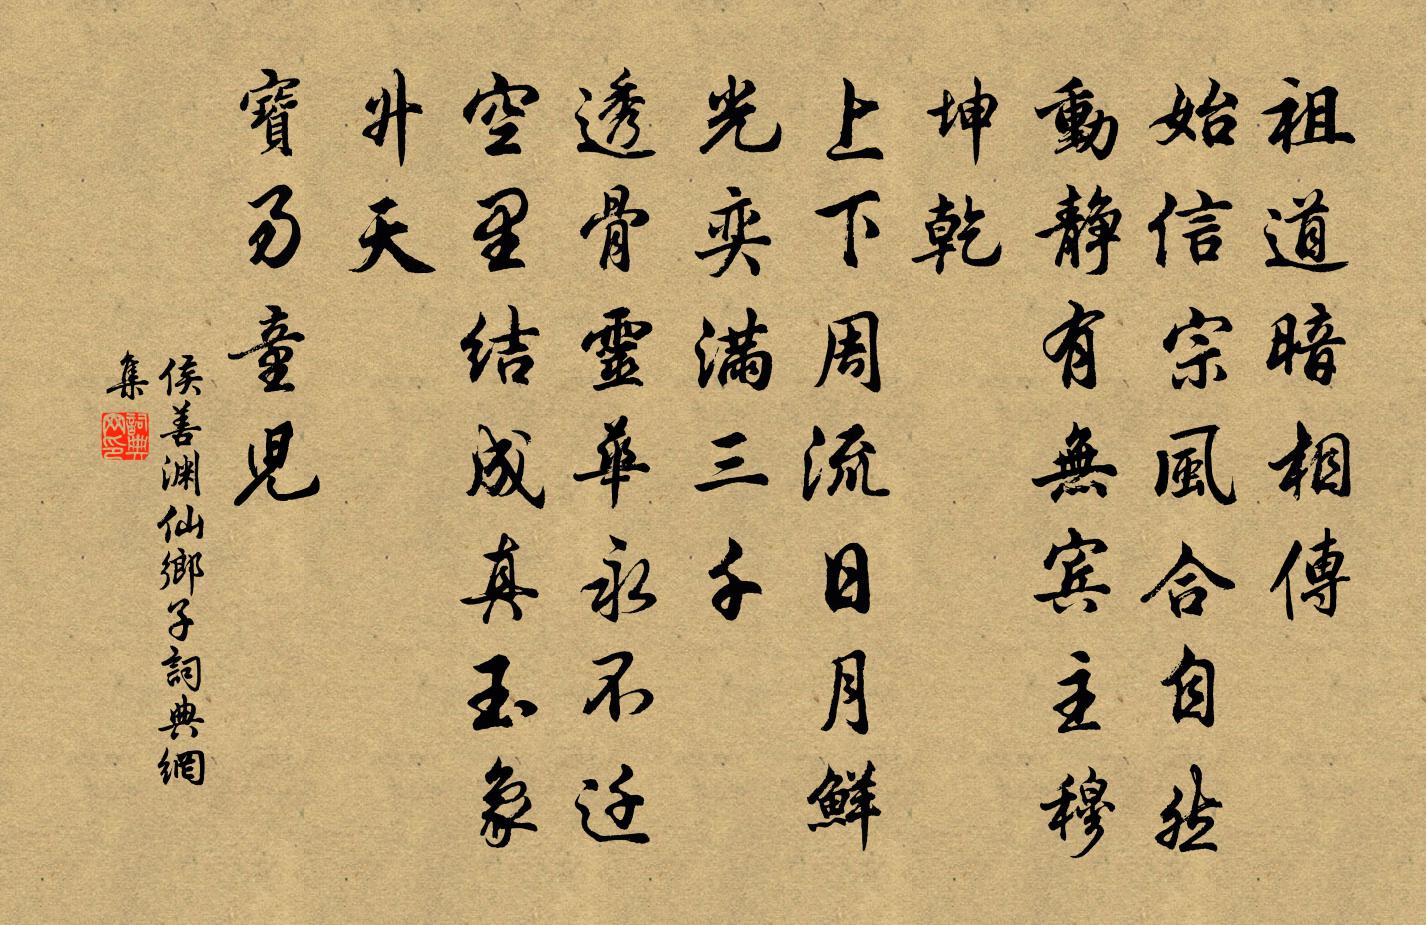 祖道暗相傳
始信宗風合自然
動靜有無宾主穆
坤乾
上下周流日月鮮
光奕滿三千
透骨靈華永不迁
空里结成真玉象
升天
寶童児
侯善渊仙鄉子詞典網
集
詞典網印